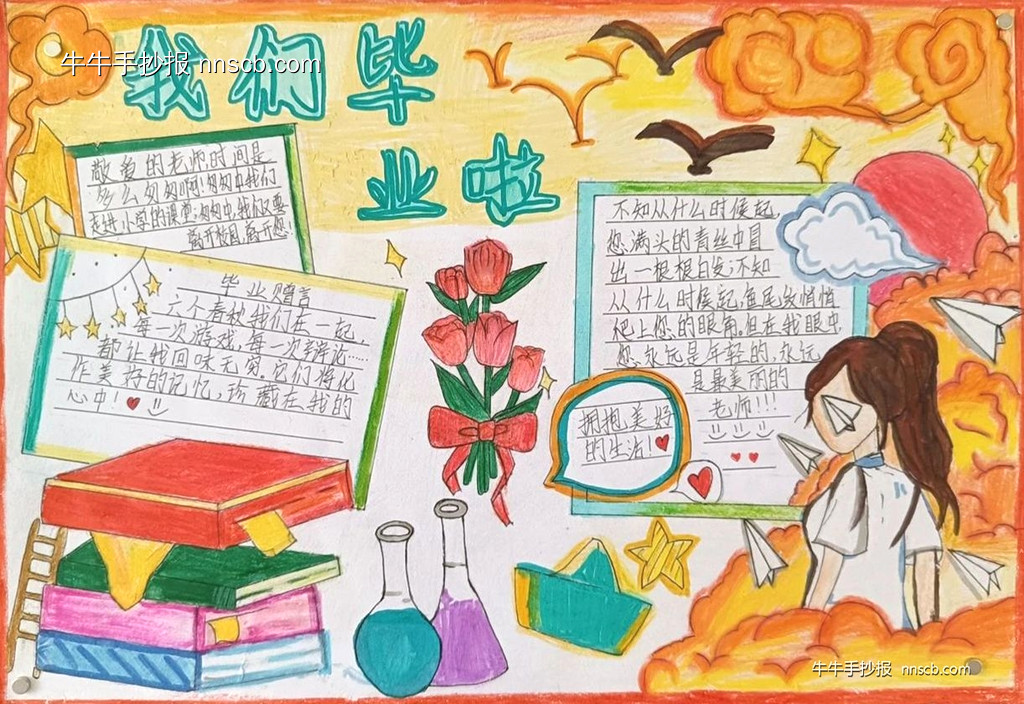 牛牛手抄报 nnscb.com
我们毕
业啦
敬爱的老师时间是
多么匆匆啊!匆匆中我们
走进小学的课堂;匆匆中,我们又要
离开校园,离开您!
毕业赠言
六个春秋我们在一起,
每一次游戏,每一次辩论……
都让我回味无穷.它们将化
作美好的记忆,珍藏在我的
心中!
不知从什么时候起,
您满头的青丝中冒
出一根根白发;不知
从什么时候起,鱼尾纹悄悄
爬上您的眼角。但在我眼中,
您永远是年轻的,永远
是最美丽的
老师!!!
拥抱美好
的生活!
牛牛手抄报 nnscb.com